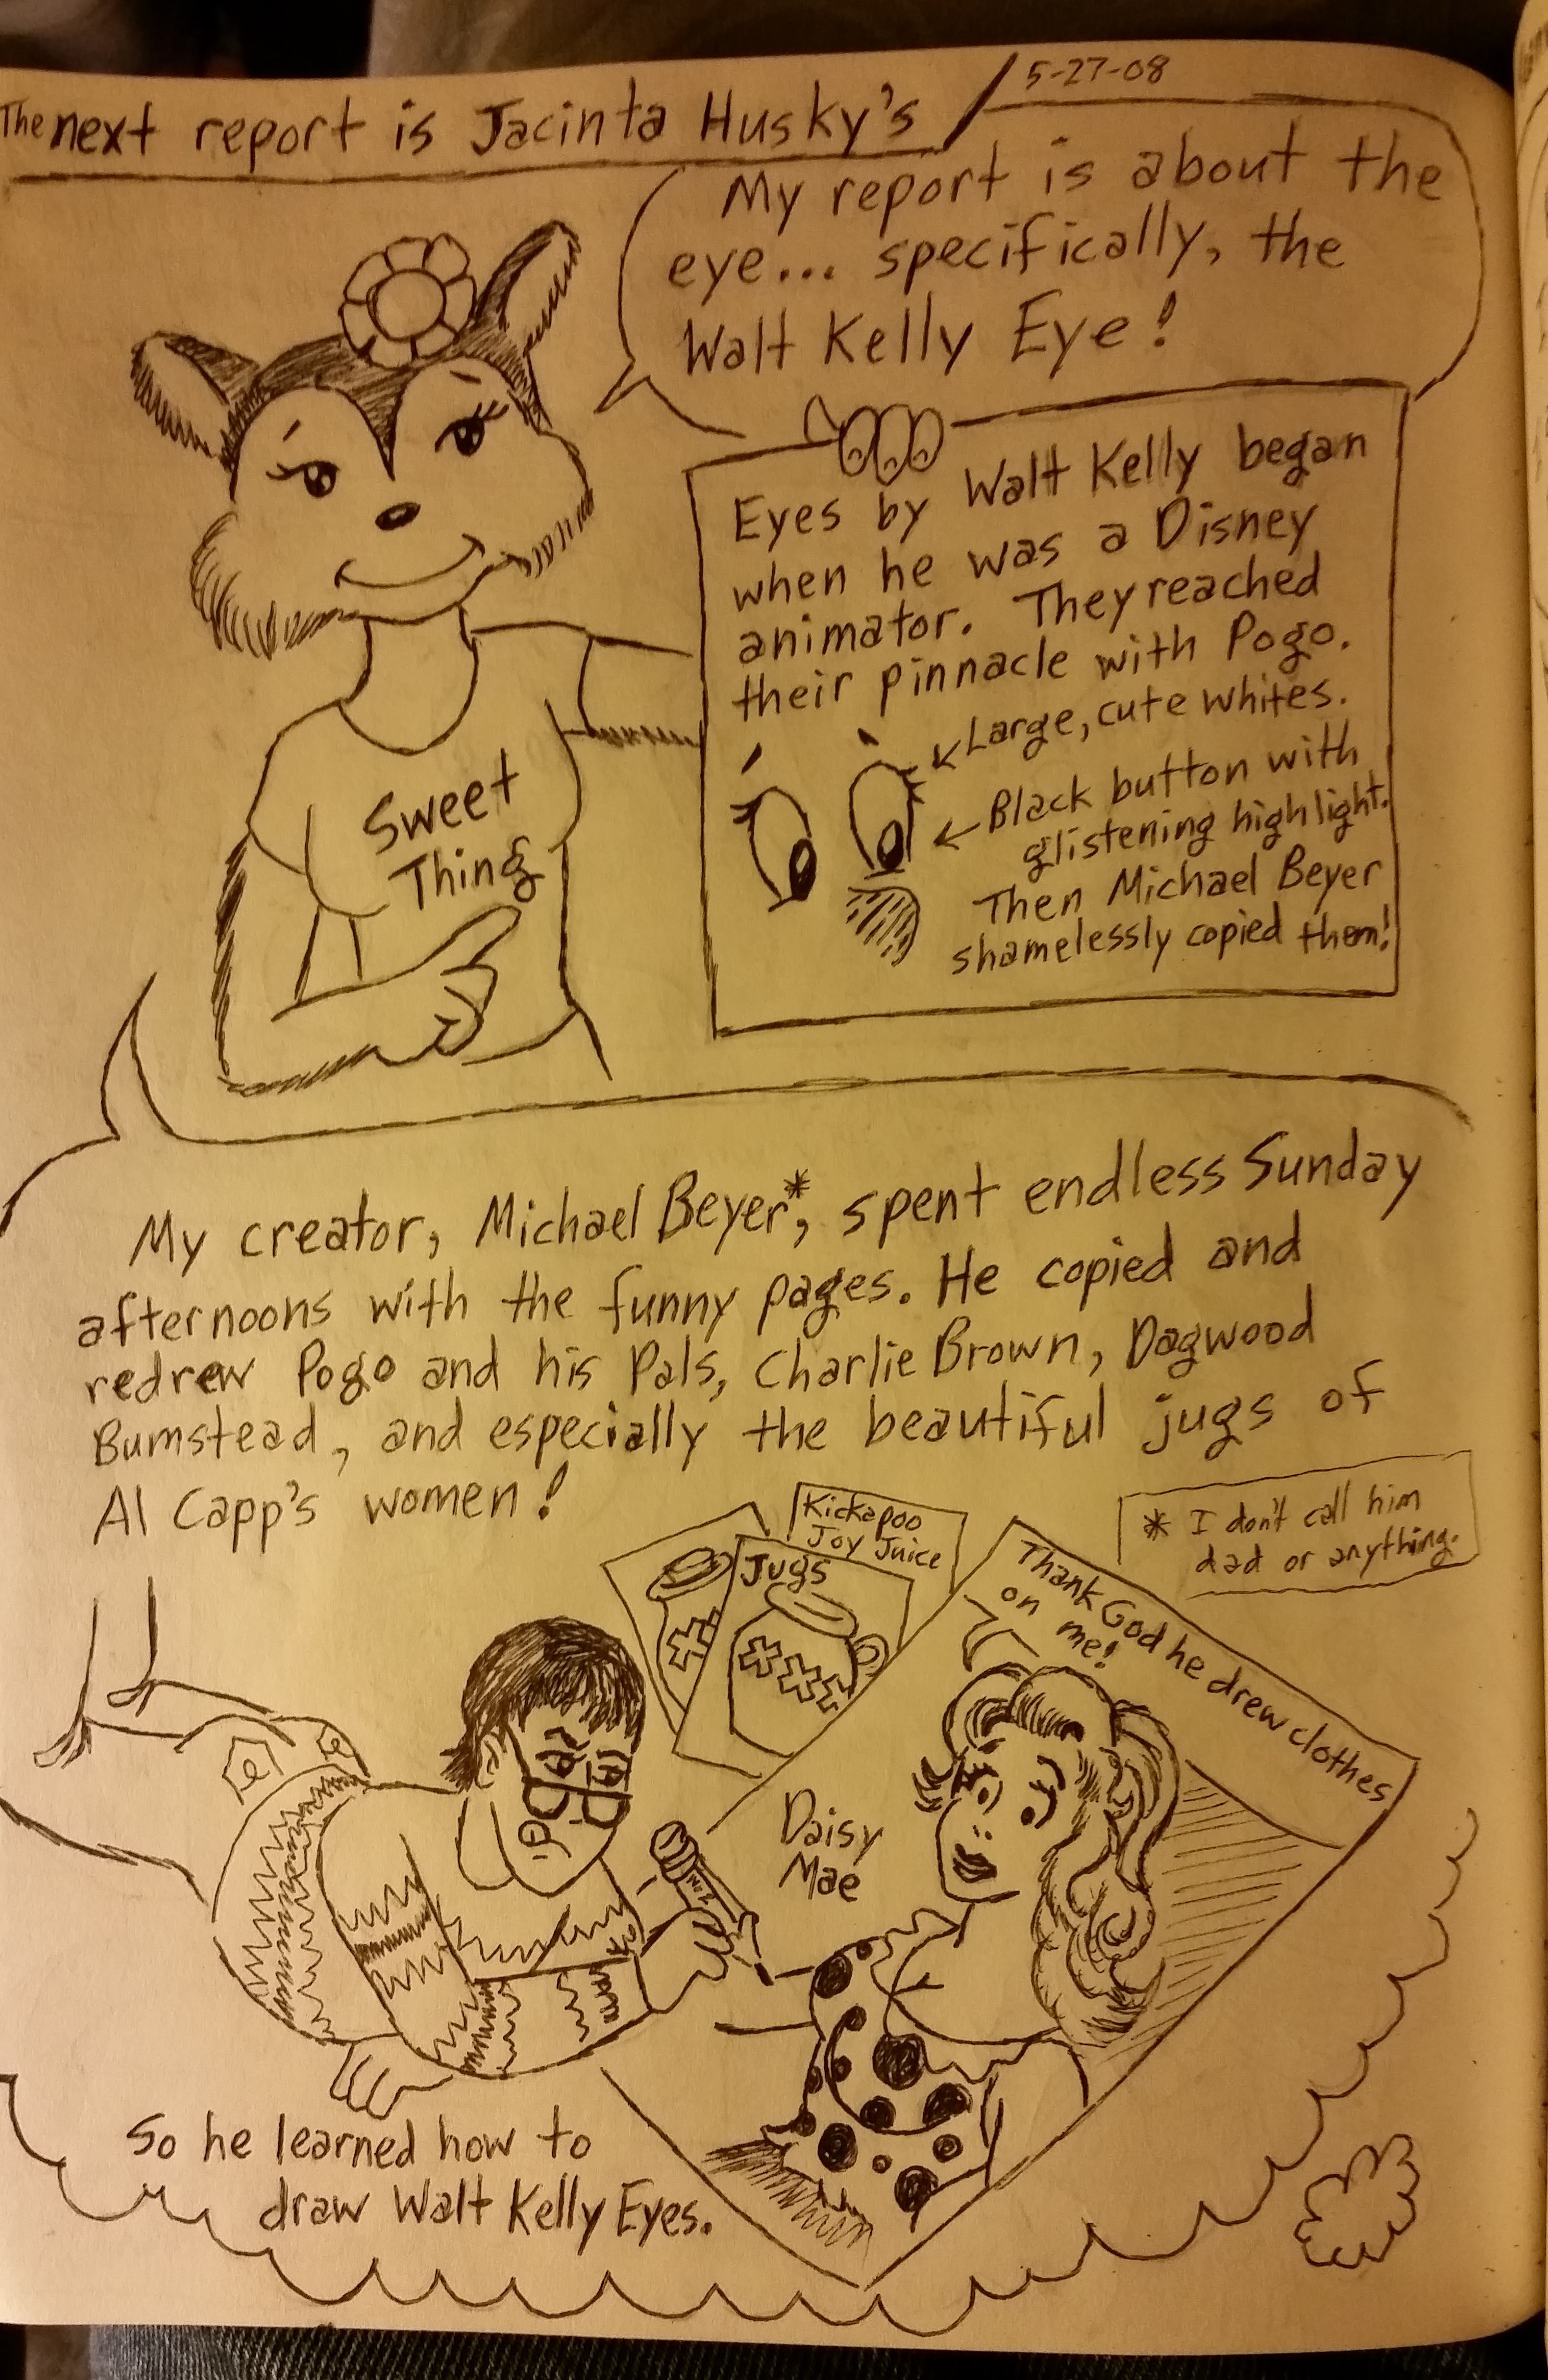 The next report is Jacinta Husky's
5-27-08
My report is about the
eye... specifically, the
Walt Kelly Eye!
Eyes by Walt Kelly began
when he was a Disney
animator. They reached
their pinnacle with Pogo.
Large, cute whites.
Black button with
glistening highlight.
Then Michael Beyer
shamelessly copied them!
Sweet
Thing
My creator, Michael Beyer*, spent endless Sunday
afternoons with the funny pages. He copied and
redrew Pogo and his Pals, Charlie Brown, Dagwood
Bumstead, and especially the beautiful jugs of
Al Capp's women!
* I don't call him
dad or anything.
Kickapoo
Joy Juice
Jugs
XXX
Thank God he drew clothes
on me!
Daisy
Mae
So he learned how to
draw Walt Kelly Eyes.